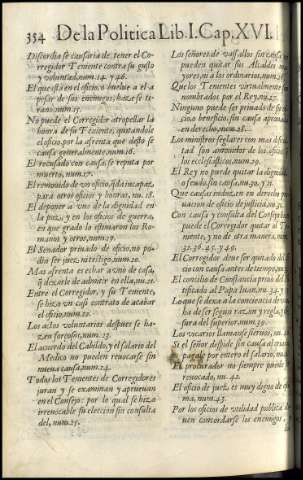 354 De la Politica Lib. I. Cap. XVI.
Discordia se causaria de tener el Co-
rregidor Teniente contra su gusto
y voluntad, num. 14. y 46.
El que està en el oficio a bueluer a el a
pesar de sus enemigos, haze se ti-
rano, num. 15.
No puede el Corregidor atropellar la
honra de su Teniente, quitandole
el oficio, por la afrenta que dello se
causa generalmente, num. 16.
El recusado con causa, se reputa por
muerto, num. 17.
El remouido de vn oficio, q̃da incapaz
para otro oficio y honras, nu. 18.
El deponer a vno de la dignidad en
la paz, y en los oficios de guerra,
en que grado lo estimaron los Ro-
manos y otros, num. 19.
El Senador priuado de oficio, no po-
dia ser juez ni testigo, num. 20.
Mas afrenta es echar a vno de casa,
q̃ dexarle de admitir en ella, nu. 21.
Entre el Corregidor, y su Teniente,
se haze vn casi contrato de acabar
el oficio, num. 22.
Los actos voluntarios despues se ha-
zen forçosos, num. 23.
El acuerdo del Cabildo, y el salario del
Medico no pueden reuocarse sin
nueua causa, num. 24.
Todos los Tenientes de Corregidores
juran y se examinan y aprueuan
en el Consejo: por lo qual se haze
irreuocable su eleccion sin consulta
del, num. 25.
Los señores de vassallos sin causa no
pueden quitar sus Alcaldes ma-
yores, ni a los ordinarios, num. 26.
Que los Tenientes virtualmente son
nombrados por el Rey, nu. 27.
Ninguno puede ser priuado de su ofi-
cio, o beneficio, sin causa aprouada
en derecho, num. 28.
Los ministros seglares con mas dificul-
tad son amouidos de los oficios que
los eclesiasticos, num. 29.
El Rey no puede quitar la dignidad
o feudo, sin causa, nu. 30. y 31.
Que causas induzen en derecho
priuacion de oficio de justicia, nu. 31.
Con causa y consulta del Consejo
puede el Corregidor quitar al Te-
niente, y no de otra manera, num.
32. 39. 45. y 49.
El Corregidor deue ser quitado del ofi-
cio con causa antes de tiempo, num.
El concilio de Constancia priuò del Pon-
tificado al Papa Iuan, nu. 34.
Lo que se dexa a la conciencia de
ha de ser segun razon y regla,
sura del superior, num. 39.
Los vocarios llamanse sieruos, nu. 40.
Si el señor despide sin causa al criado
por entero el salario, nu.
El procurador no siempre puede ser
reuocado, nu. 42.
El oficio de juez, es muy digno de esti-
ma, num. 43.
Por los oficios de vtilidad publica de-
uen concordarse los enemigos,